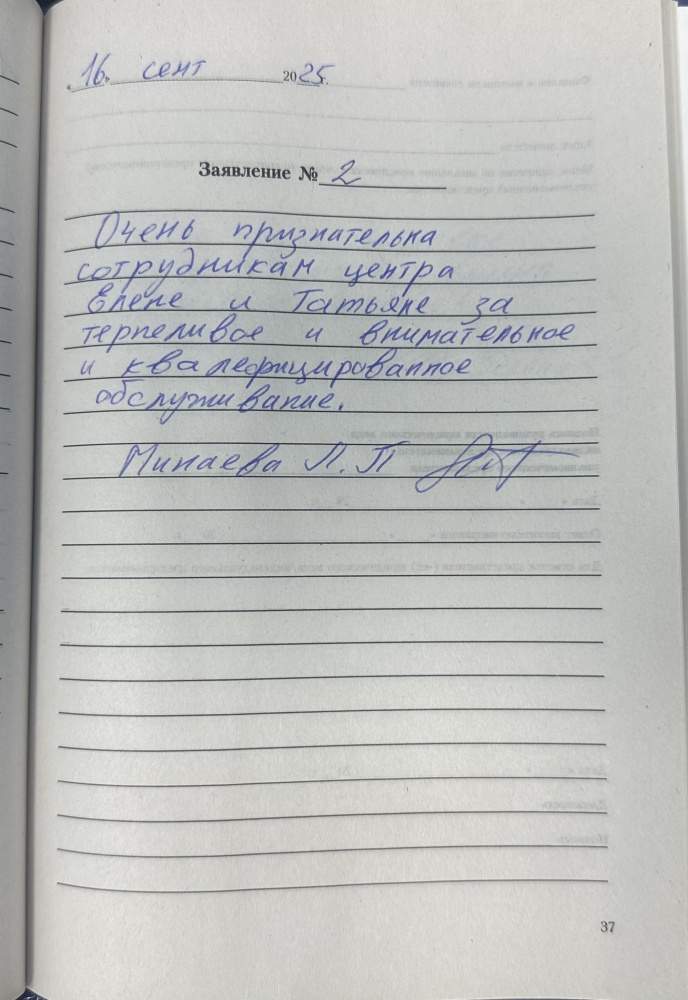 „16" сент 2025г.
Заявление № 2
Очень признательна
сотрудникам центра
Елене и Татьяне за
терпеливое и внимательное
и квалефицированное
обслуживание.
Минаева Л.П
37